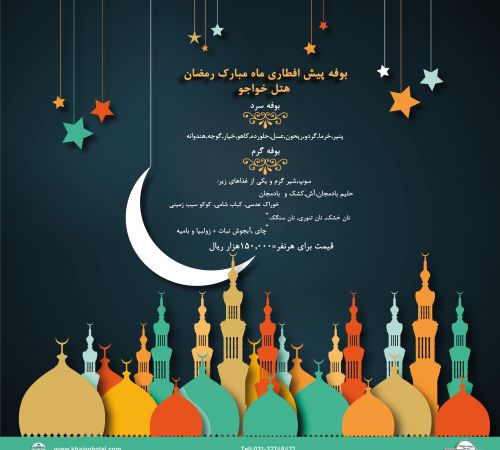 بوفه پیش افطاری ماه مبارک رمضان
هتل خواجو
بوفه سرد
پنیر,خرما,گردو,ریحون,عسل,حلوارده,کاهو,خیار,گوجه,هندوانه
بوفه گرم
سوپ,شیر گرم و یکی از غذاهای زیر:
حلیم بادمجان,آش,کشک و بادمجان
خوراک عدسی, کباب شامی, کوکو سیب زمینی
نان خشک, نان تنوری, نان سنگک"
"چای ,آبجوش نبات + زولبیا و بامیه
قیمت برای هرنفر=۱۵۰,۰۰۰هزار ریال